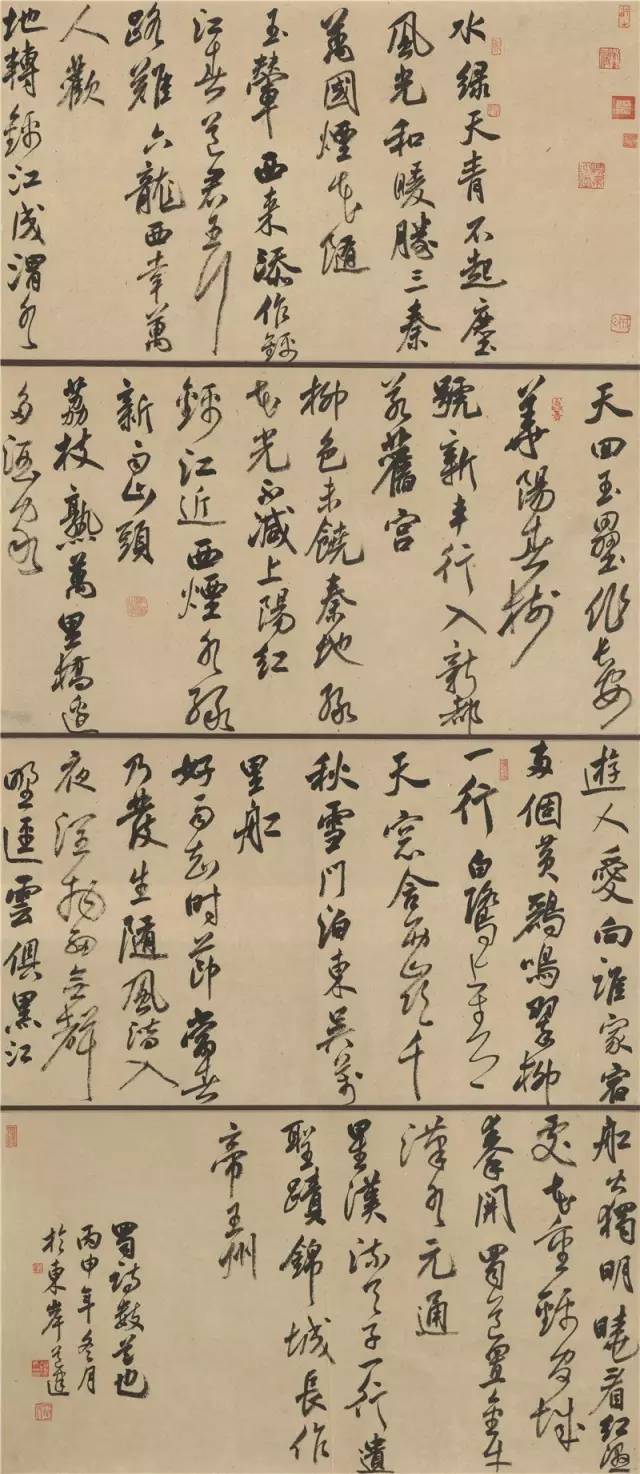 水绿天青不起塵
風光和暖勝三秦
萬國煙花隨
玉輦西来添作錦
江春道君王行
路難六龍西幸萬
人歡
地轉錦江成渭水
天回玉壘作長安
華陽春樹
號新丰行入新都
若舊宮
柳色未饒秦地綠
花光不減上陽紅
錦江近西煙水綠
新雨山頭
荔枝熟萬里橋邊
多酒家
遊人愛向誰家宿
兩個黃鸝鳴翠柳
一行白鷺上青
天窓含西嶺千
秋雪門泊東吳萬
里船
好雨知時節當春
乃發生隨風潛入
夜潤物細無聲
野逕雲俱黑江
船火獨明曉看紅濕
處花重錦官城
秦開蜀道置金牛
漢水元通
星漢流天子一行遺
聖蹟錦城長作
帝王州
蜀詩數首也
丙申年冬月
於東岸